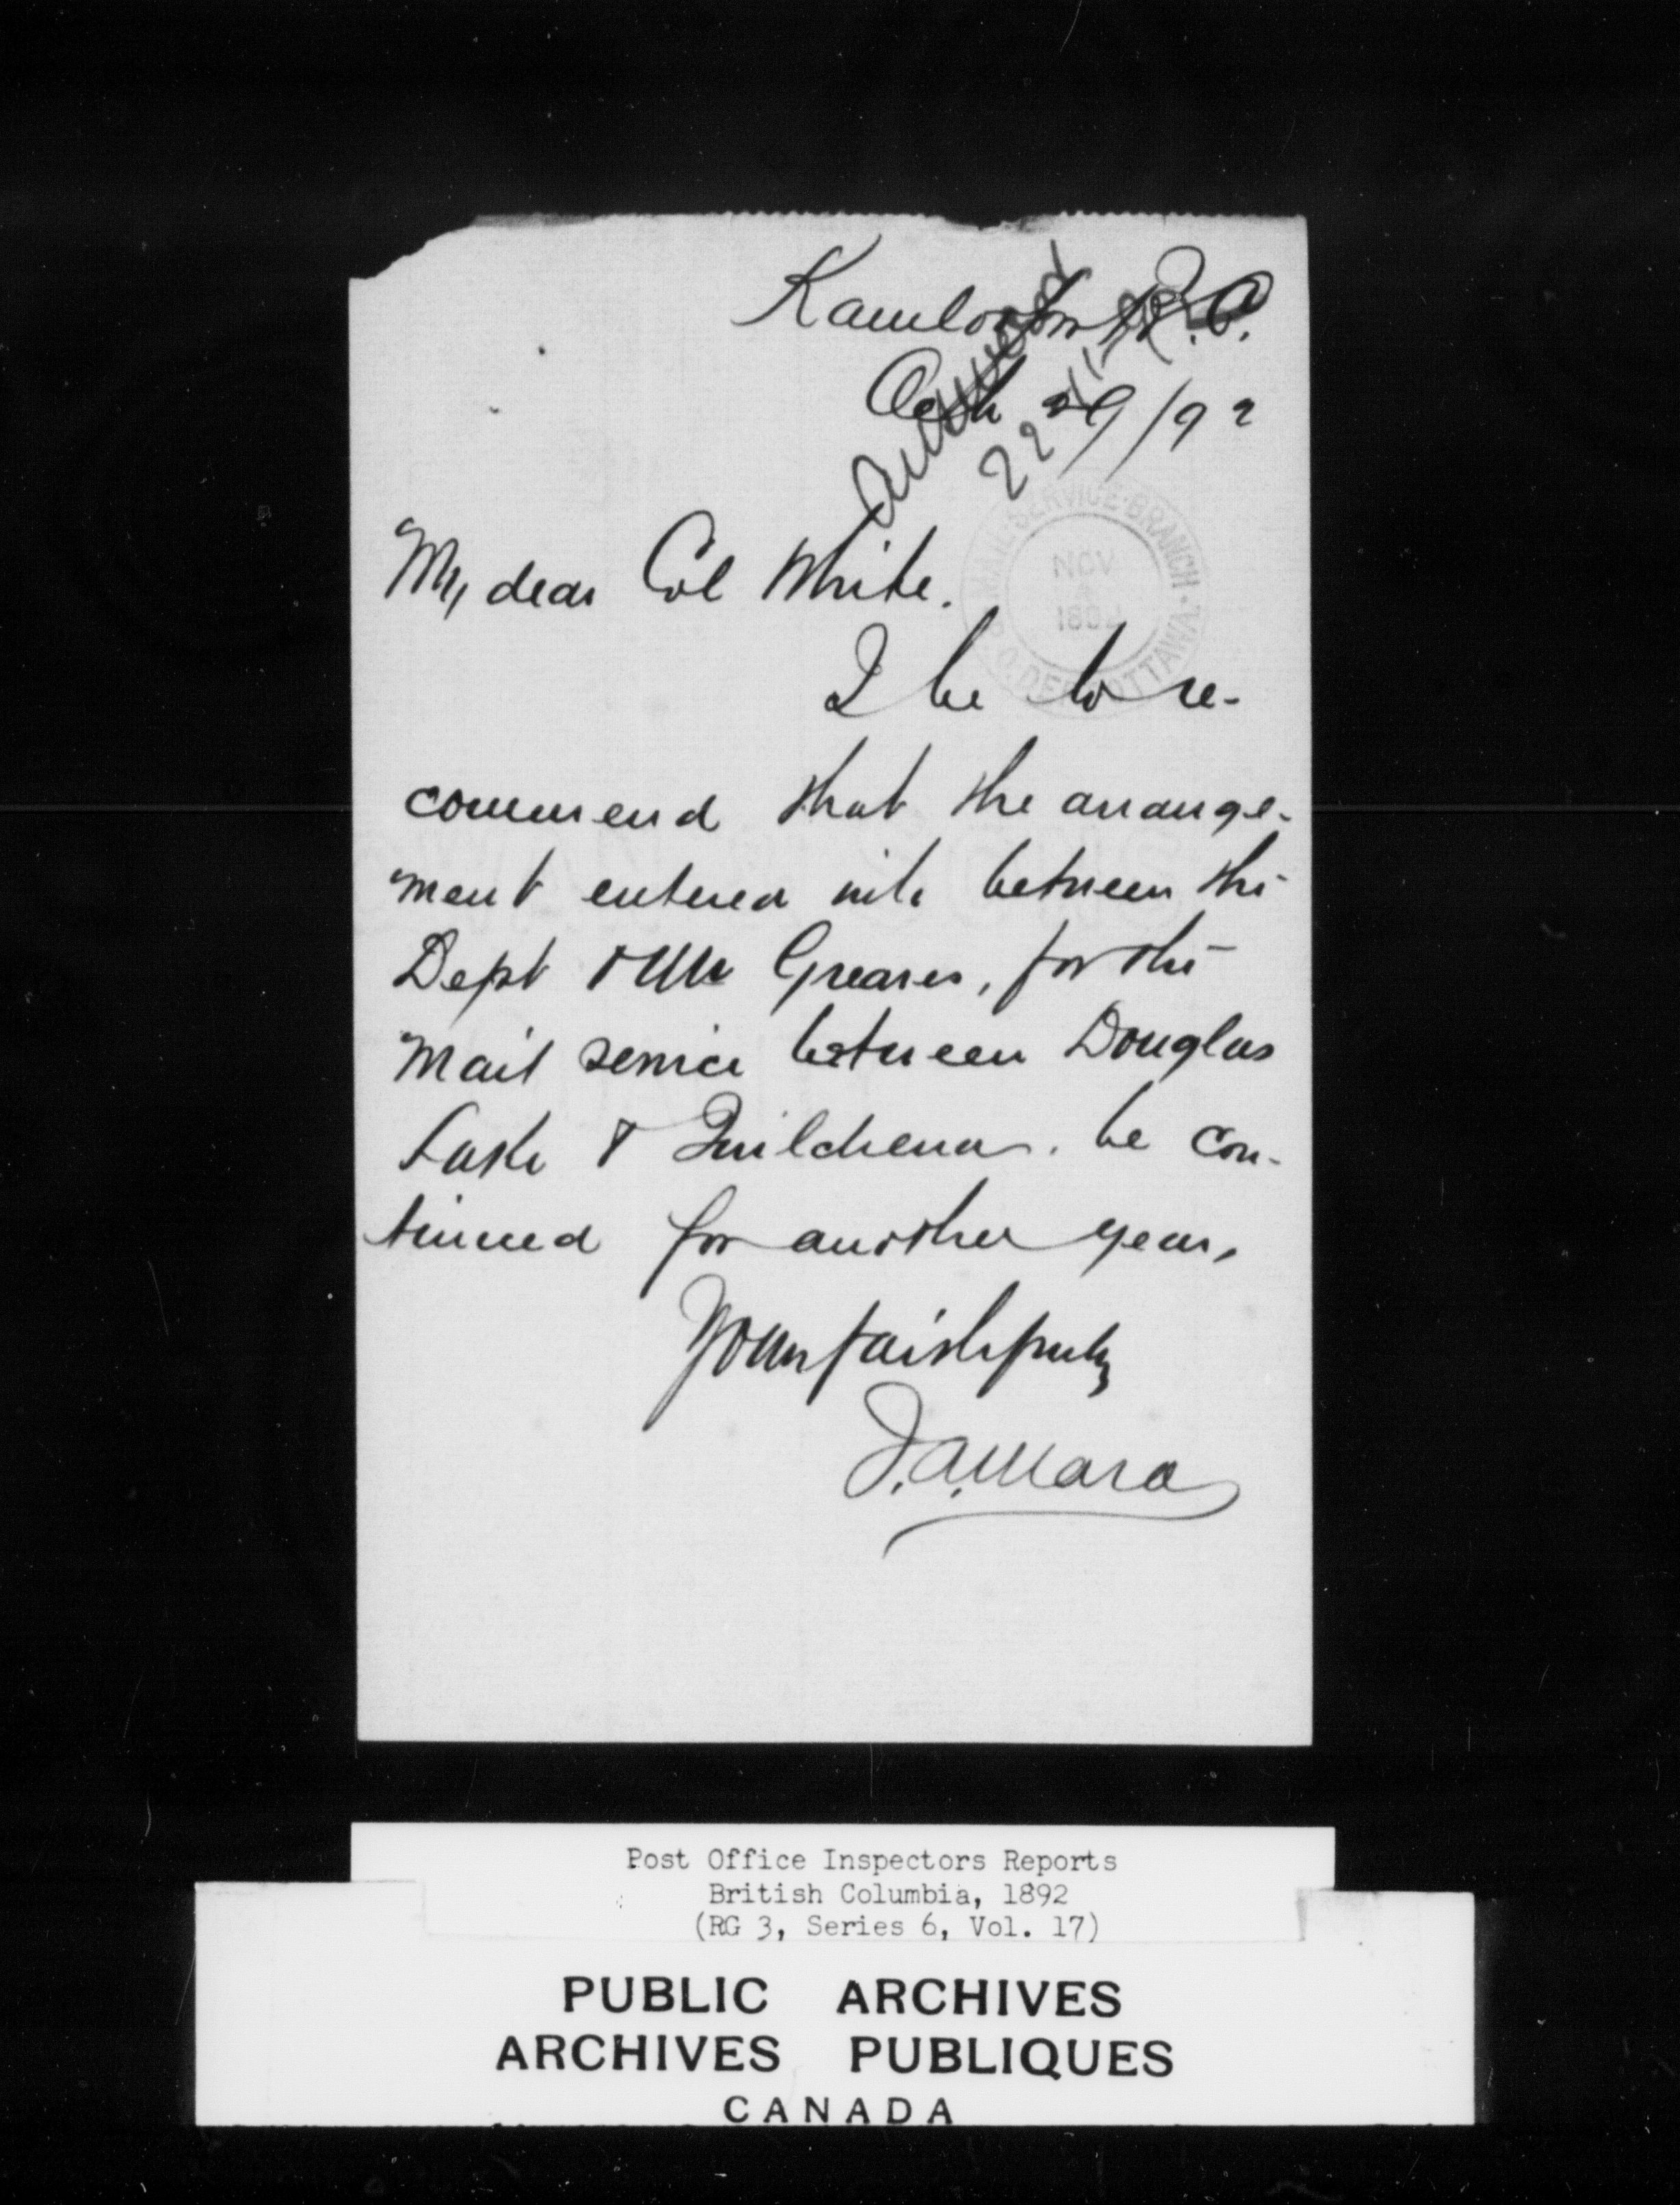 Kamloops B.C.
Oct 29/92
answered
22/11/92
MAIL SERVICE BRANCH
NOV
189
P.O. DEPT OTTAWA
My dear Col White.
I be to re-
commend that the arrange-
ment entered into between the
Dept & Mr Greaves, for the
Mail service between Douglas
Lake & Quilchena. be con-
tinued for another year.
Yours faithfully
J. A. Mara
Post Office Inspectors Reports
British Columbia, 1892
(RG 3, Series 6, Vol. 17)
PUBLIC ARCHIVES
ARCHIVES PUBLIQUES
CANADA